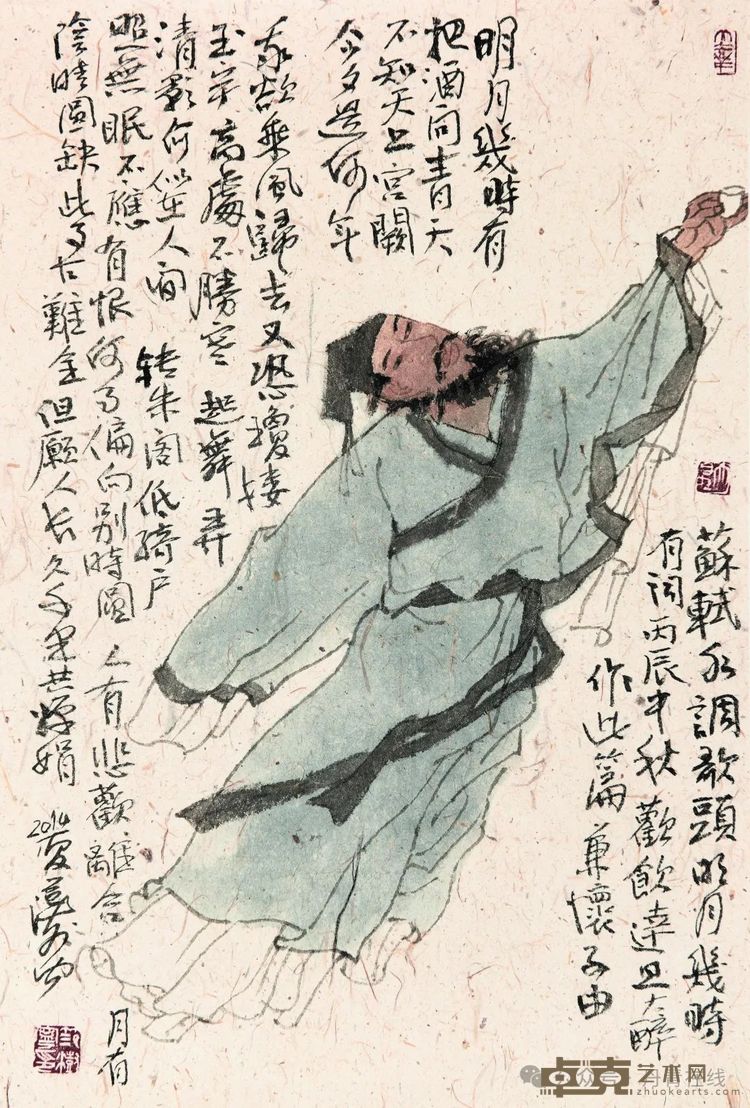 明月幾時有
把酒问青天
不知天上宫闕
今夕是何年
我欲乘風歸去又恐瓊樓
玉宇高處不勝寒 起舞弄
清影何似在人间 转朱阁低绮户
照無眠不應有恨何事偏向别時圓 人有悲歡離合
月有
陰晴圓缺此事古難全但願人长久千里共嬋娟
2014夏
蘇軾水調歌頭明月幾時
有词丙辰中秋歡飲達旦大醉
作此篇兼懷子由
卓克艺术网
zhuokearts.com